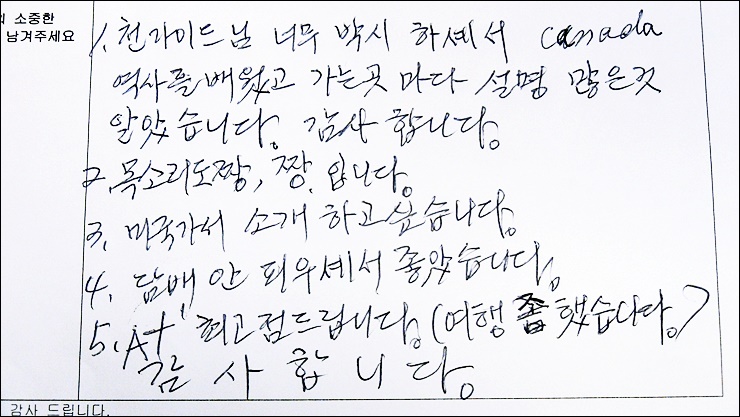 의 소중한
남겨주세요
1. 천가이드님 너무 박시 하셰서 canada
역사를 배웠고 가는곳 마다 설명 많은것
알았습니다. 감사 합니다.
2. 목소리도짱, 짱. 입니다.
3. 미국가서 소개 하고싶습니다.
4. 담배 안 피우셰서 좋았습니다.
5. A+ 최고점드립니다. (여행 했습니다.)
감 사 합 니 다.
감사 드립니다.